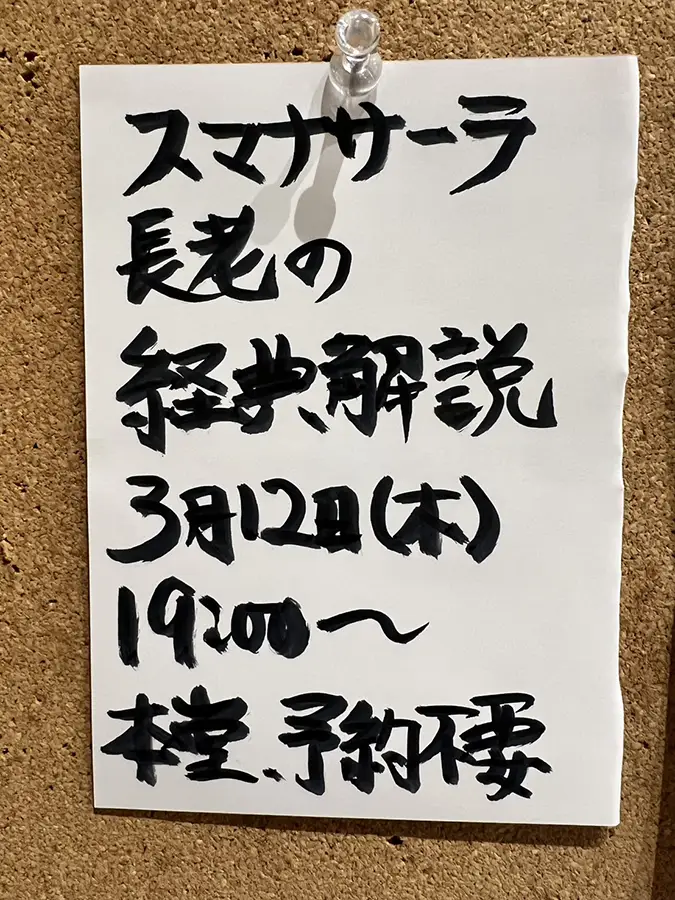 スマナサーラ
長老の
経典解説
3月12日(木)
19:00〜
本堂、予約不要